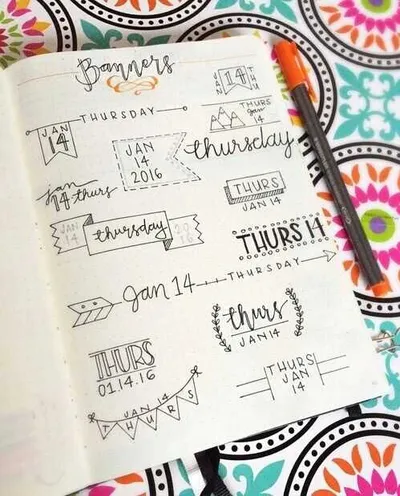 Banners
JAN 14 THU
THURSDAY
JAN
14
THURS
Jan
14
JAN
14
2016
thursday
jan
14 thurs
THURS
JAN 14
JAN
14
thursday
20
16
THURS 14
Jan 14
THURSDAY
thurs
JAN 14
THURS
01.14.16
THURS
JAN
14
JAN 14
THURS